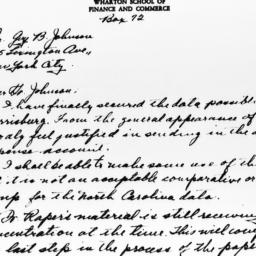 WHARTON SCHOOL OF
FINANCE AND COMMERCE
Box 72
Guy B. Johnson
Lexington Ave.,
New York City.
Dr. Johnson:
I have finally secured the data possible
rrisburg. From the general appearance of
feel justified in sending in the
account.
I shall be able to make some use of th
it is not an acceptable comparative or
up for the North Carolina data.
material is still receiving
centration at the time. This will con
last step in the process of the pape